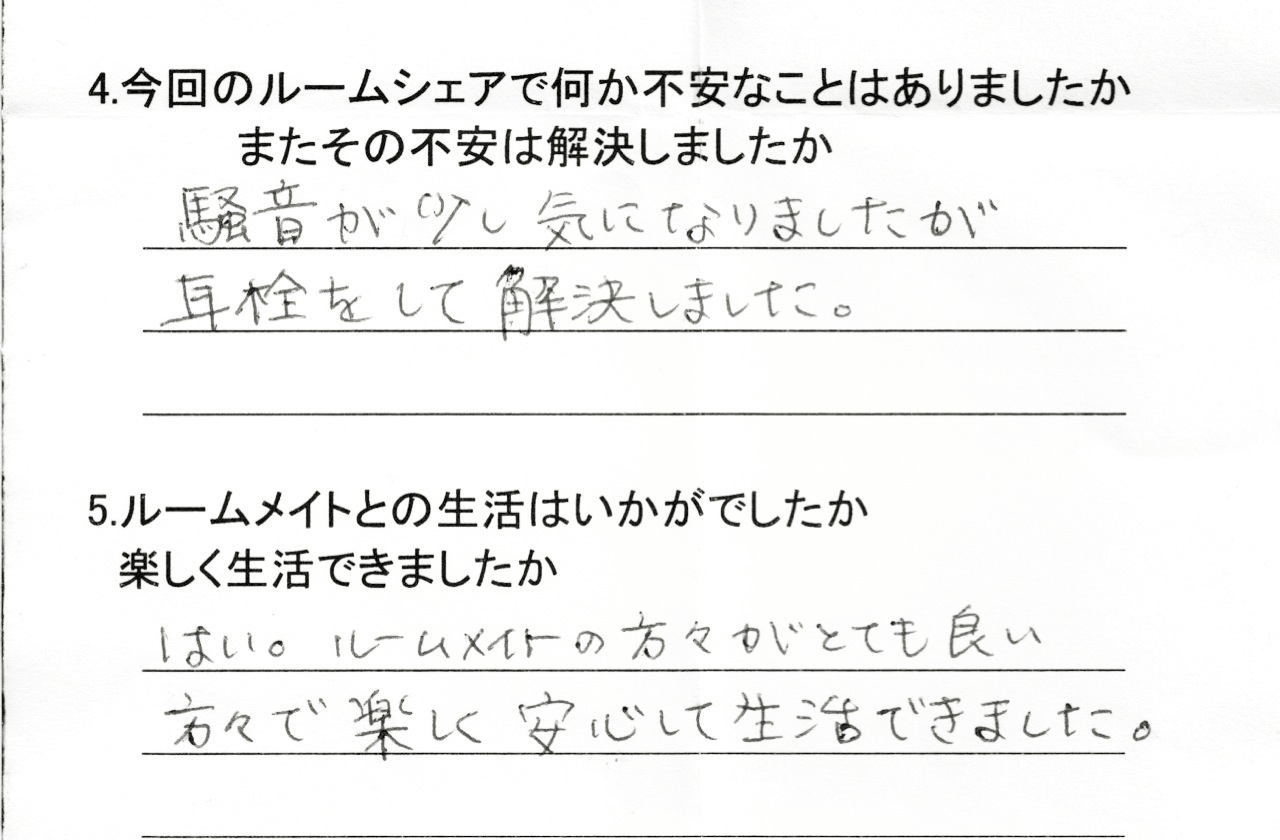 4.今回のルームシェアで何か不安なことはありましたか
またその不安は解決しましたか
騒音が少し気になりましたが
耳栓をして解決しました。
5.ルームメイトとの生活はいかがでしたか
楽しく生活できましたか
はい。ルームメイトの方々がとても良い
方々で楽しく安心して生活できました。